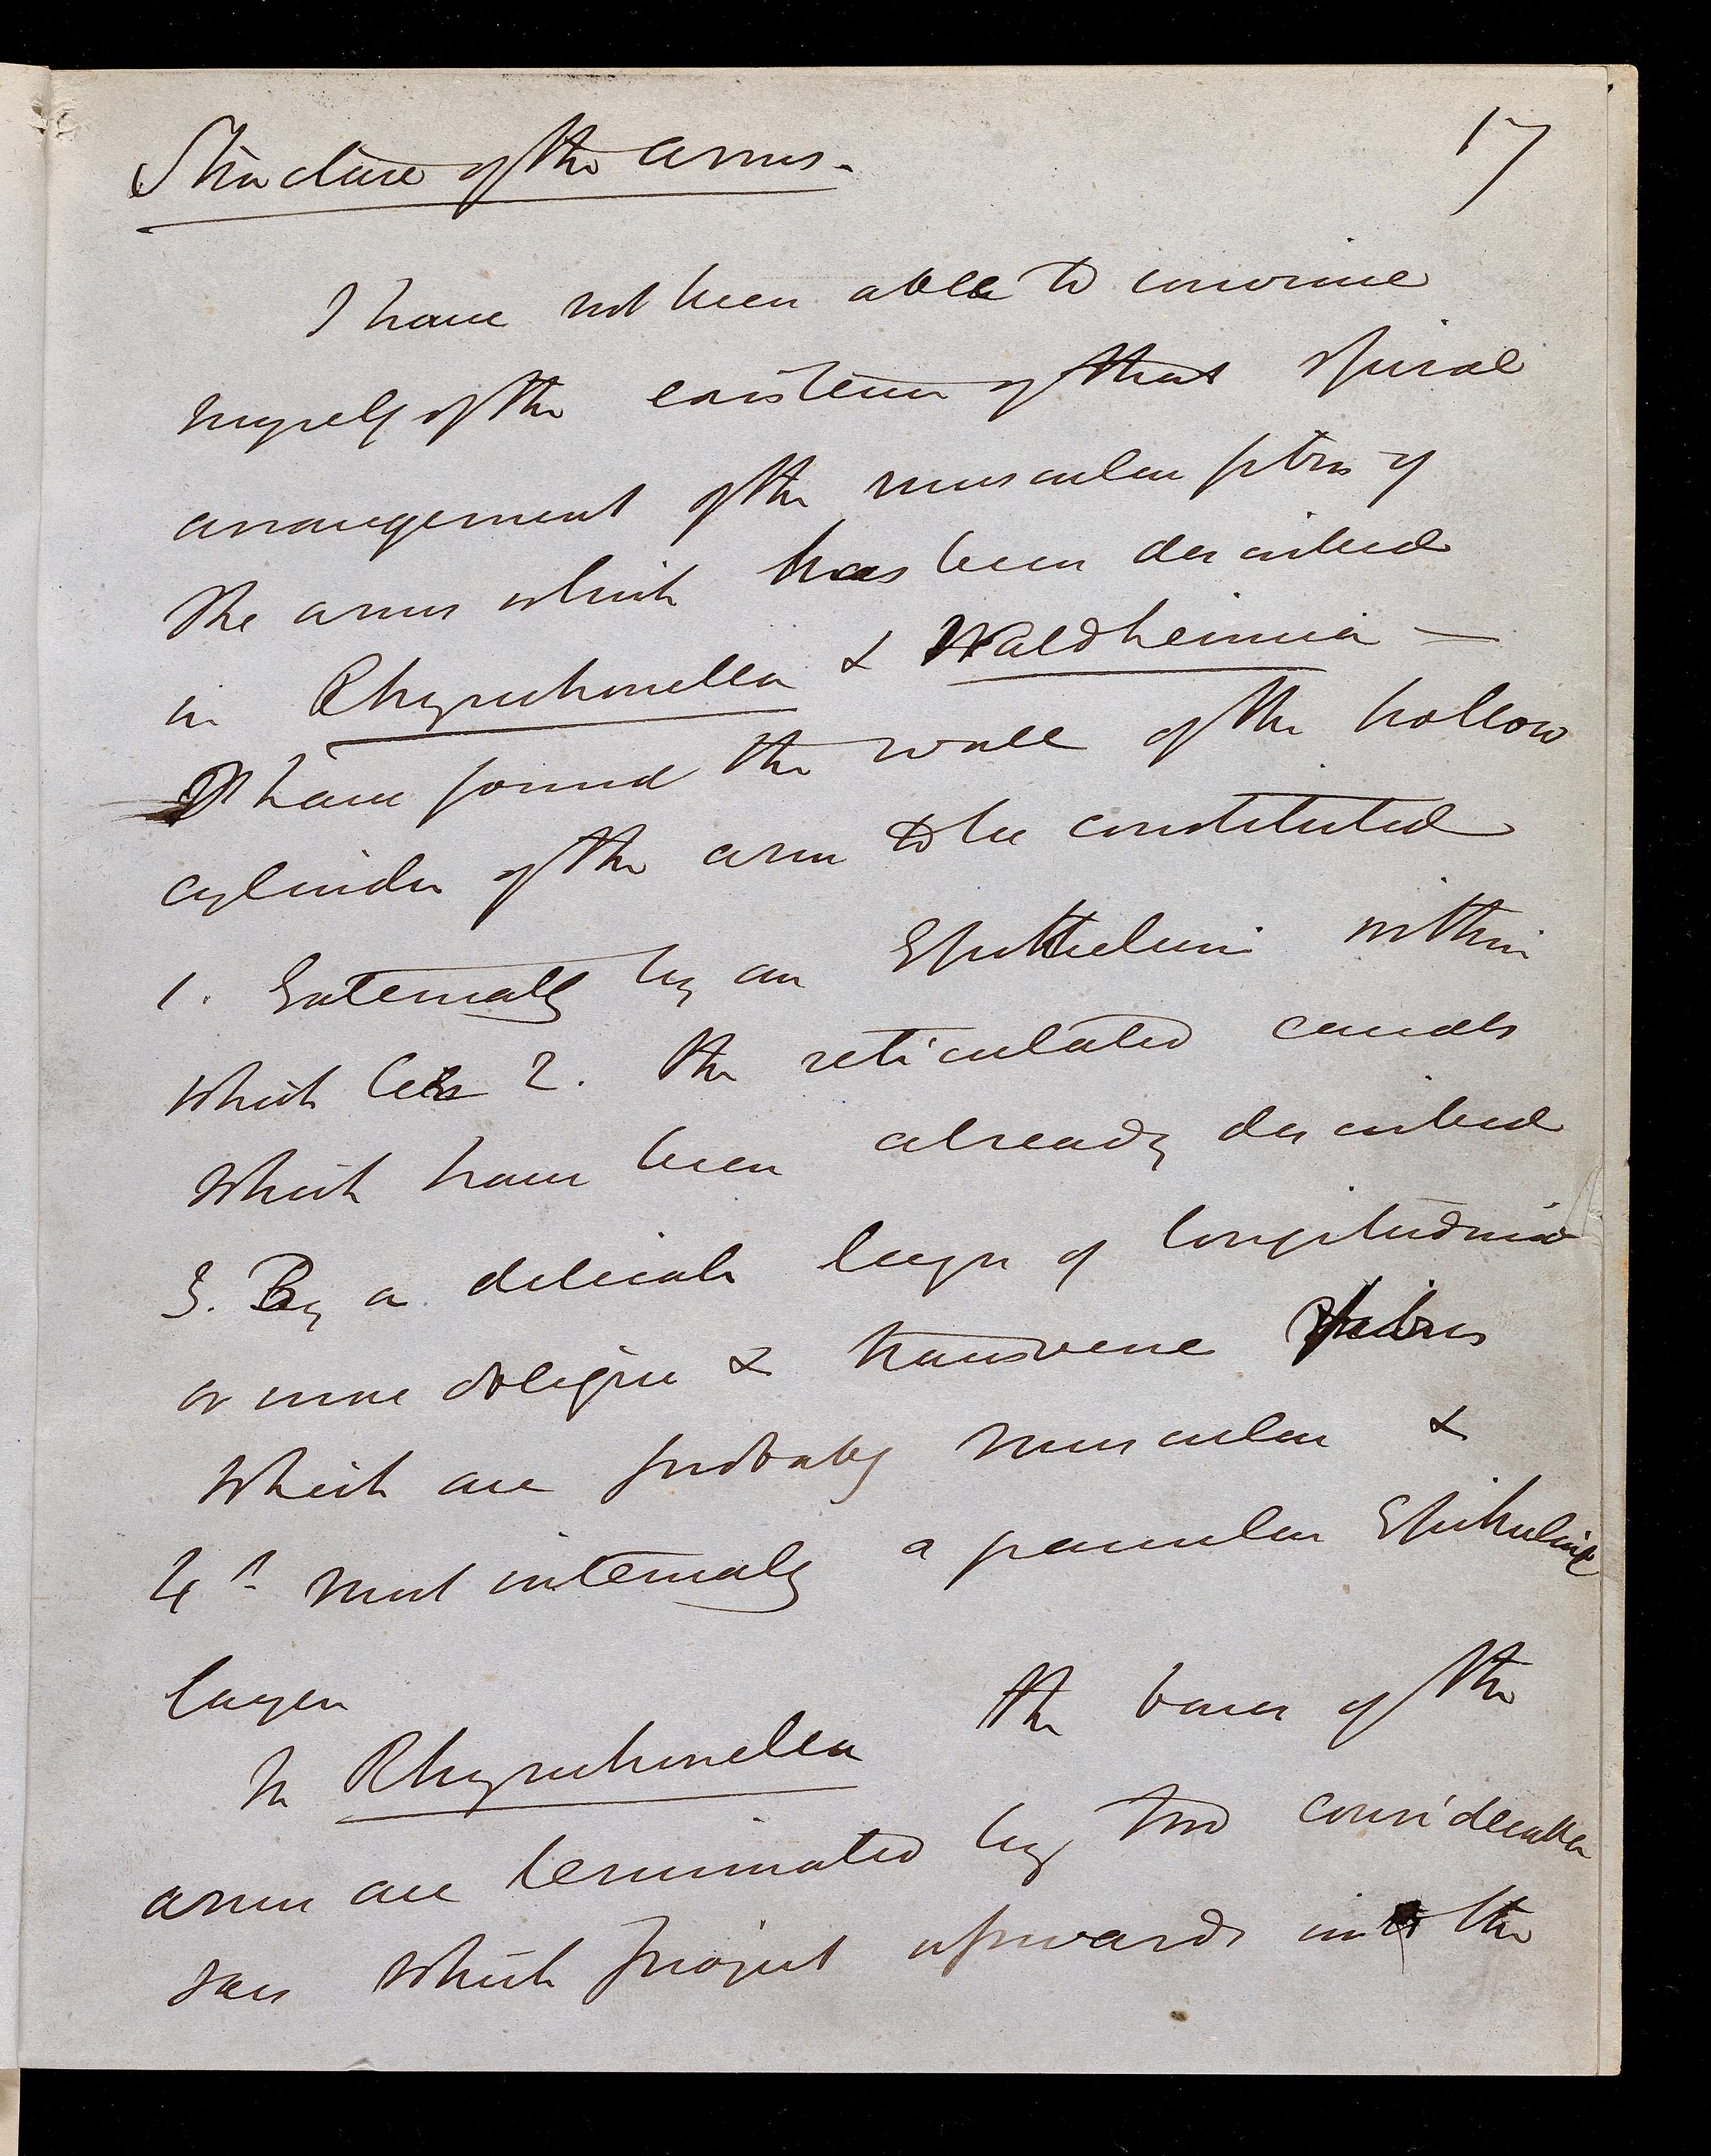 Structure of the arms.
17
I have not been able to convince
myself of the existence of that spiral
arrangement of the muscular fibres of
the arms which has been described
in Rhynchonella & Waldheimia —
I have found the wall of the hollow
cylinder of the arm to be constituted
1. Externally by an Epithelium within
which lies 2. the reticulated canals
which have been already described
3. By a delicate layer of longitudinal
or more oblique & transverse fibres
which are probably muscular &
4th most internally a peculiar Epithelial
layer
In Rhynchonella the bases of the
arms are terminated by two considerable
sacs which project upwards into the